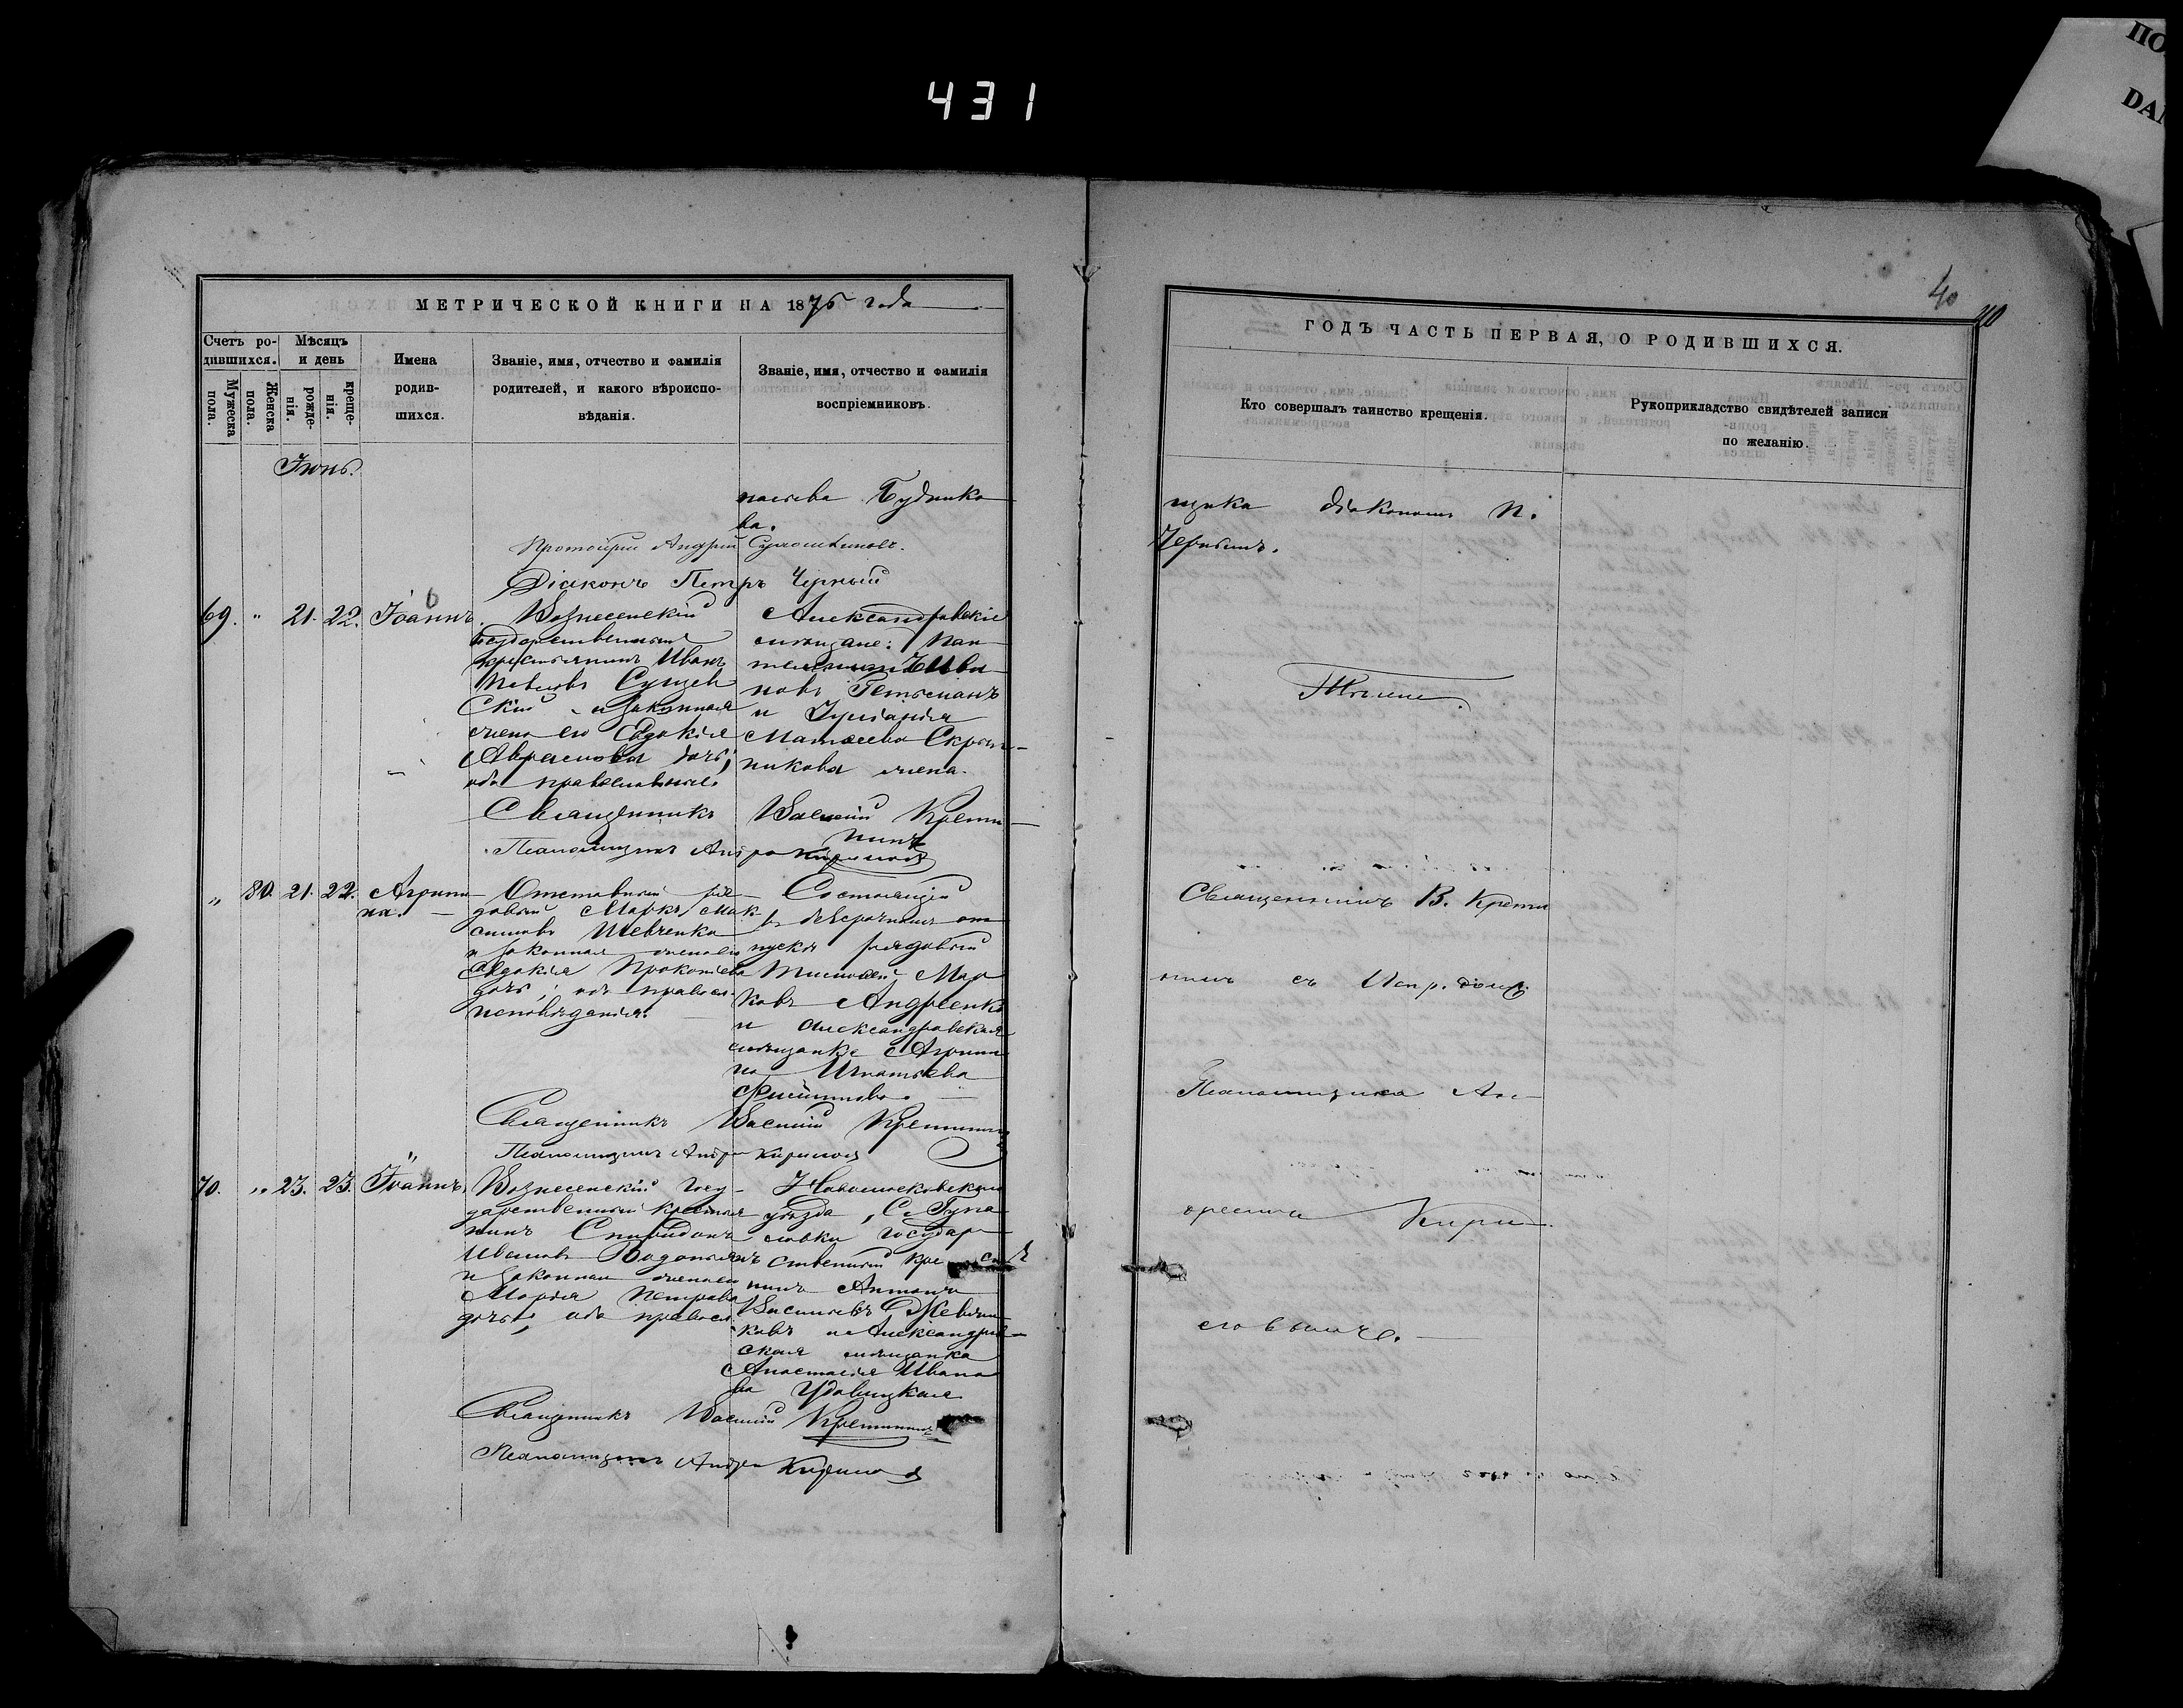 431
ПО
DAN
МЕТРИЧЕСКОЙ КНИГИ НА 1876 года
Счетъ ро-
дившихся.
Мужеска
пола.
Женска
пола.
Мѣсяцъ
и день
рожде-
нія.
креще-
нія.
Имена
родив-
шихся.
Званіе, имя, отчество и фамилія
родителей, и какого вѣроиспо-
вѣданія.
Званіе, имя, отчество и фамилія
воспріемниковъ.
Іюнь.
Будника
ва.
Протоіерей Андрей
Діаконъ Петръ Черный
69. " 21. 22. Іоаннъ.
Вознесенскій
государственный
крестьянинъ Иванъ
Павловъ Сущев
скій и законная
жена его Евдокія
Аврамова дочь;
оба православные
Александровскіе
мѣщане: Пан
телеимонъ Ива
новъ Гетьманъ
и Іуліанія
Матѳеева Скрын-
никова жена.
Священникъ Василій Крети
нинъ
Псаломщикъ Андрей Кирилов
" 80. 21. 22. Агрипи-
на.
Отставный ря-
довый Маркъ Мак-
симовъ Шевченко
и законная жена его
Евдокія Прокопіева
дочь; оба правосл.
исповѣданія.
Состоящій
въ безсрочномъ от
пуску рядовый
Тимоѳей Мар
ковъ Андреенко
и Александровская
мѣщанка Агрипи
на Игнатьева
Священникъ Василій Кретининъ
Псаломщикъ Андрей Кирилов
70. " 23. 23. Іоаннъ
Вознесенскій Госу-
дарственный крестья
нинъ Спиридонъ
Ивановъ Водопьянъ
и законная жена его
Марія Петрова
дочь; оба правосл.
Новомосковскаго
уѣзда, С. Гупа
ловки государ
ственный крестья
нинъ Антонъ
Васильевъ
ковъ и Александров
ская мѣщанка
Анастасія Ивано
ва Удовицкая
Священникъ Василій Кретининъ
Псаломщикъ Андрей Кирилов
40
40
ГОДЪ ЧАСТЬ ПЕРВАЯ, О РОДИВШИХСЯ.
Кто совершалъ таинство крещенія.
Рукоприкладство свидѣтелей записи
по желанію.
щика діакономъ П.
Чернымъ.
Тѣмже
Священникъ В. Крети
нинъ съ Испр. долж.
Псаломщика Ан-
дреемъ Кири-
ловымъ.